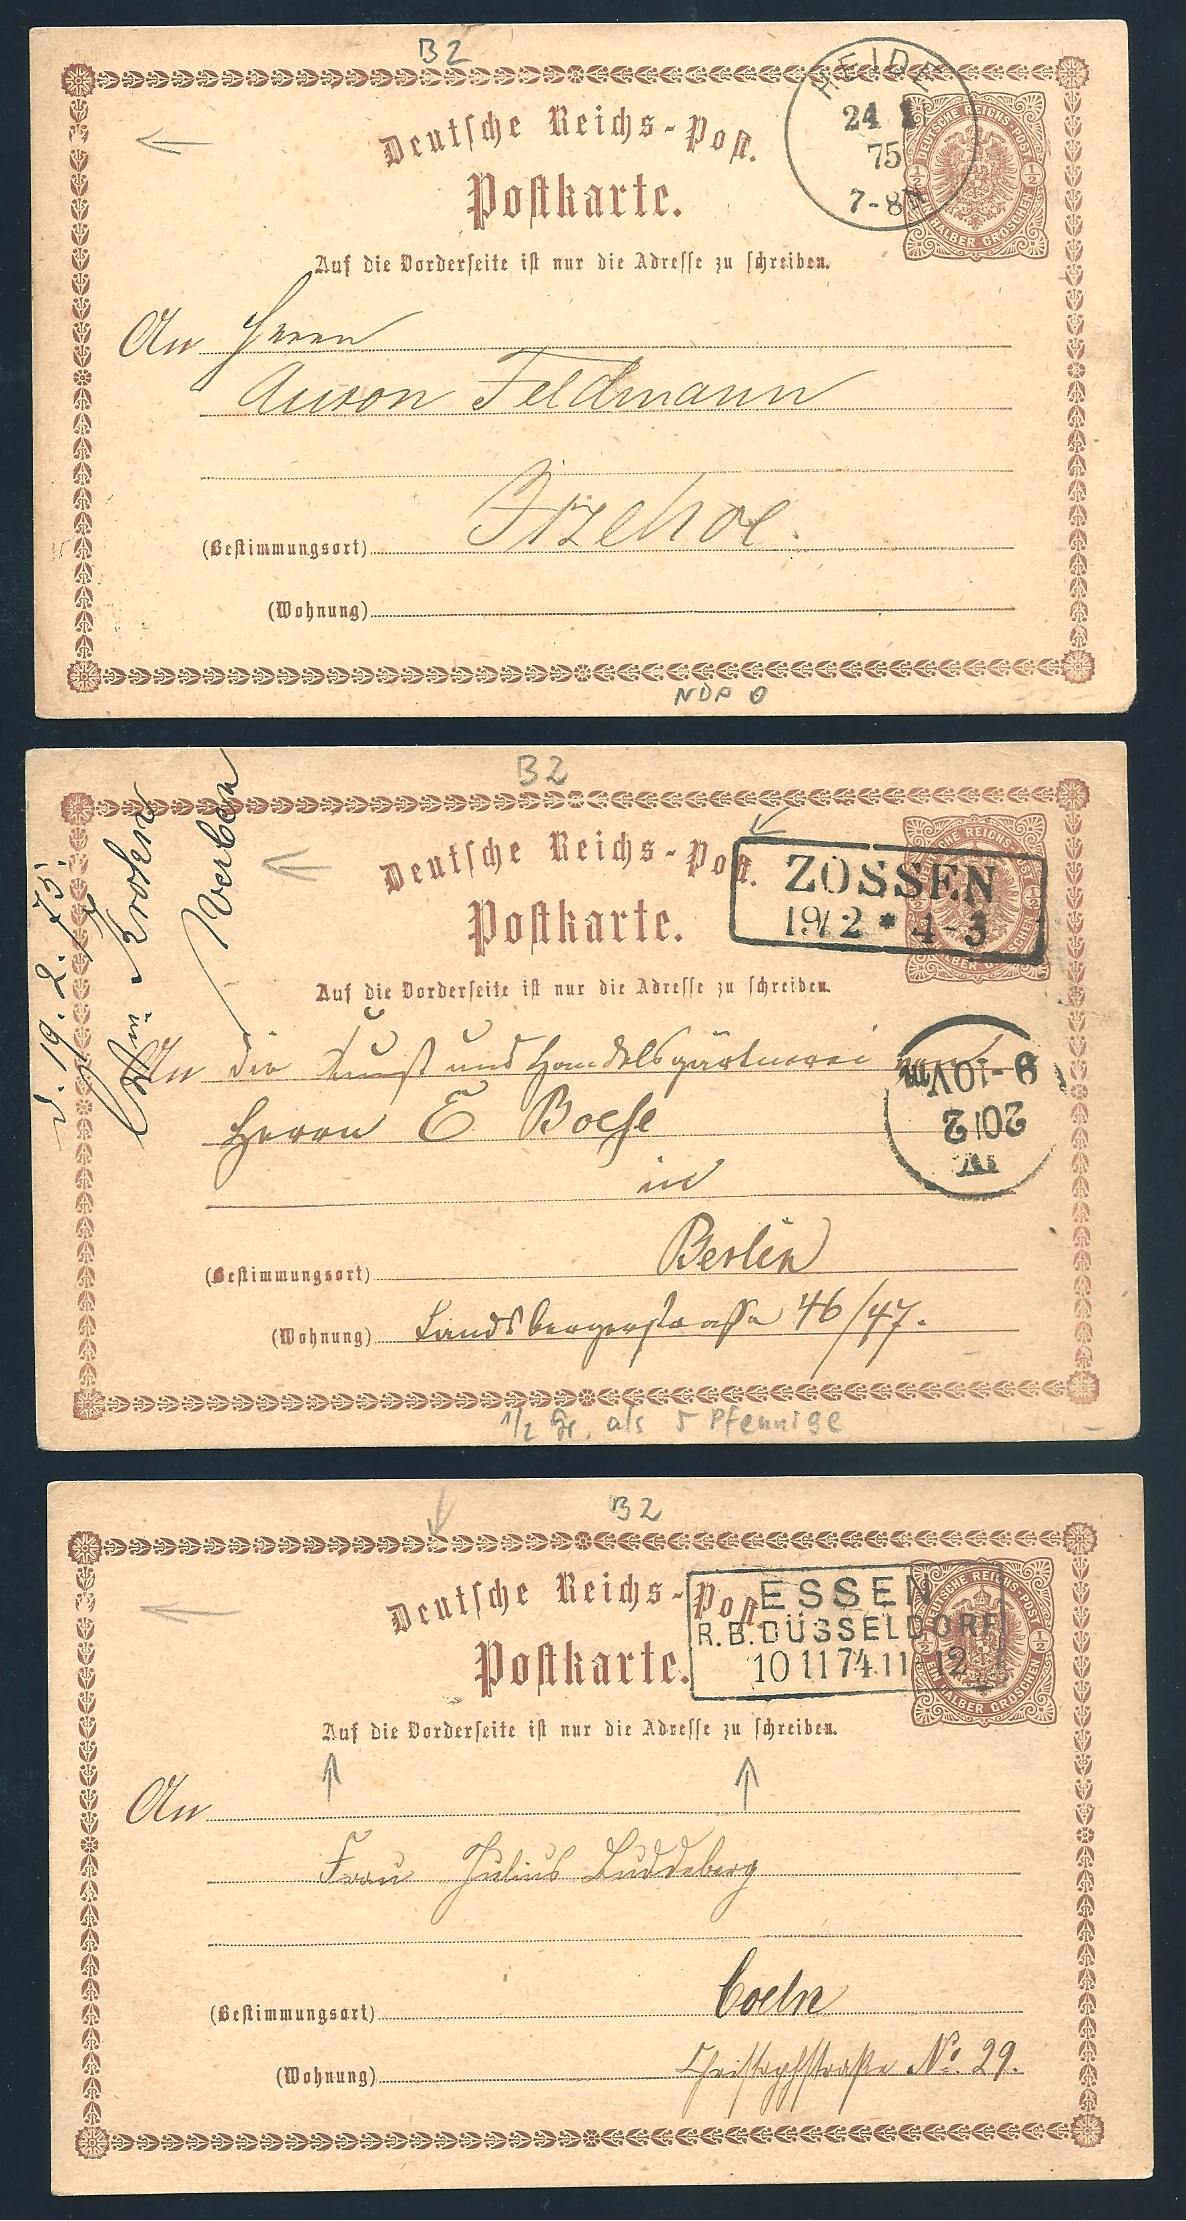 B2
Deutsche Reichs-Post.
Postkarte.
HEIDE
24 1
75
7-8N
DEUTSCHE REICHS-POST
1/2 1/2
EIN HALBER GROSCHEN
Auf die Vorderseite ist nur die Adresse zu schreiben.
An Herrn
Feldmann
(Bestimmungsort) Itzehoe.
(Wohnung)
NDP 0
B2
d. 19. 2. 75.
Werben
Deutsche Reichs-Post.
Postkarte.
ZOSSEN
19/2 * 4-3
DEUTSCHE REICHS-POST
Auf die Vorderseite ist nur die Adresse zu schreiben.
An die Kunst und Handelsgärtnerei
Herrn E Boese
in
9-10Vm
20/2
IV
(Bestimmungsort) Berlin
(Wohnung) Landsbergerstrasse 46/47.
1/2 Gr. als 5 Pfennige
B2
Deutsche Reichs-Post.
Postkarte.
ESSEN
R.B.DÜSSELDORF
10 11 74 11-12
DEUTSCHE REICHS-POST
1/2 1/2
EIN HALBER GROSCHEN
Auf die Vorderseite ist nur die Adresse zu schreiben.
An
Frau Julius Luddeberg
(Bestimmungsort) Coeln
(Wohnung) Christophstraße No. 29.